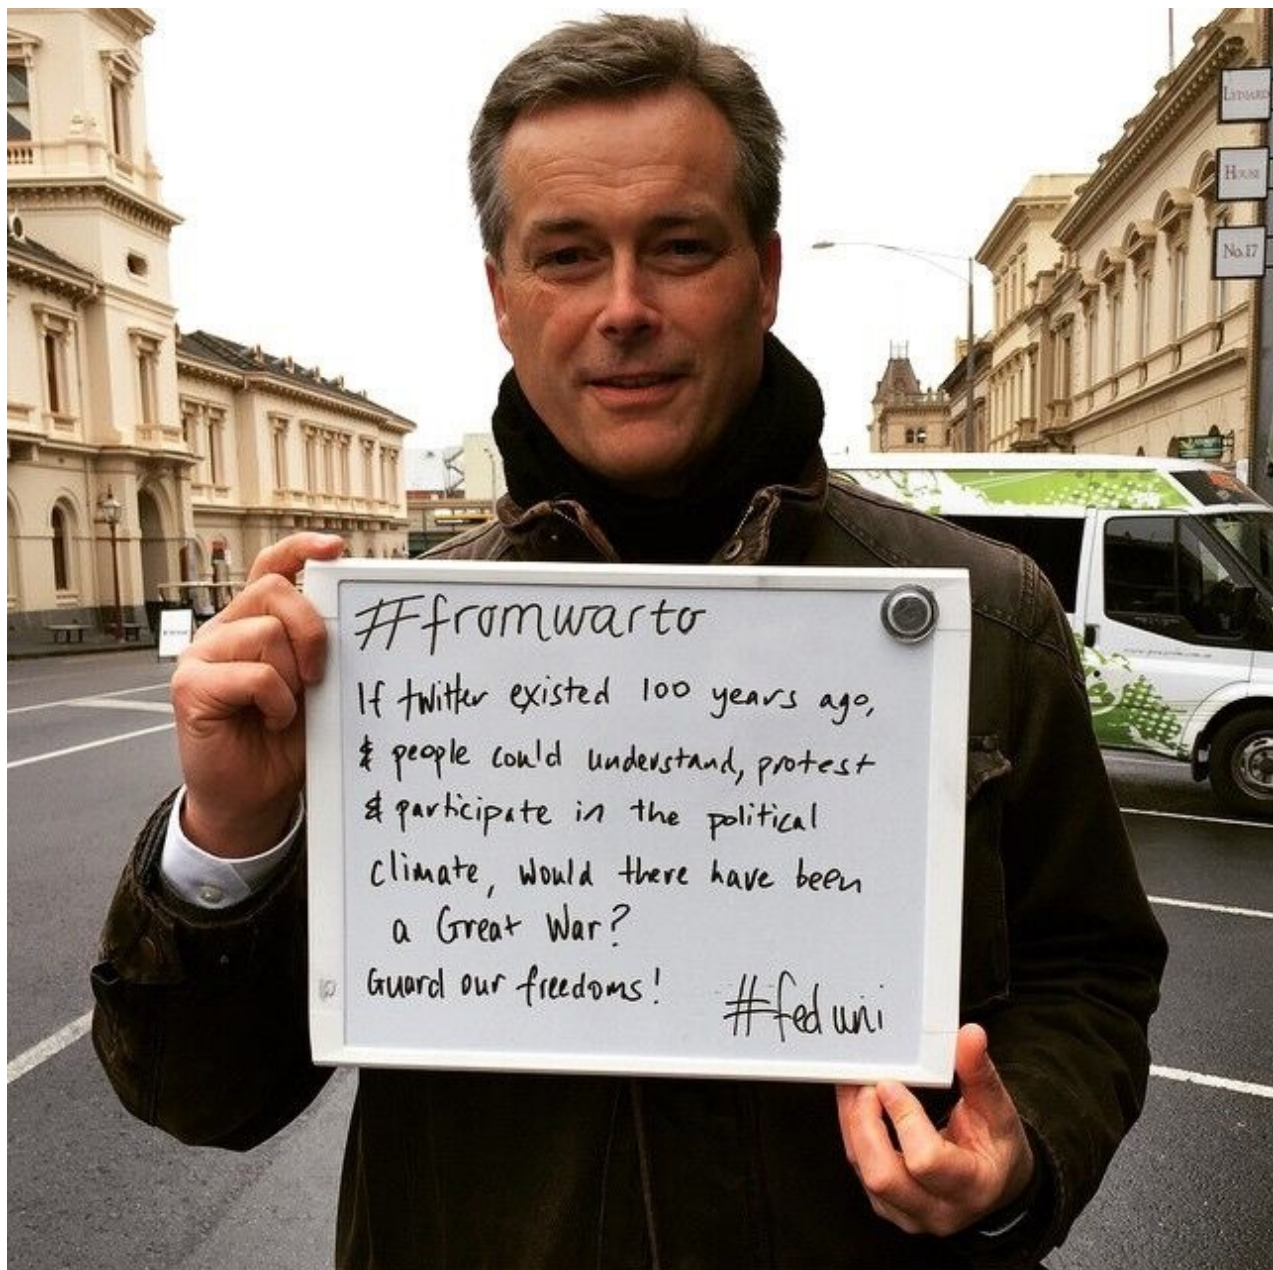 LYDIARD
HOUSE
No.17
#fromwarto
If twitter existed 100 years ago,
& people could understand, protest
& participate in the political
climate, would there have been
a Great War?
Guard our freedoms!
#feduni